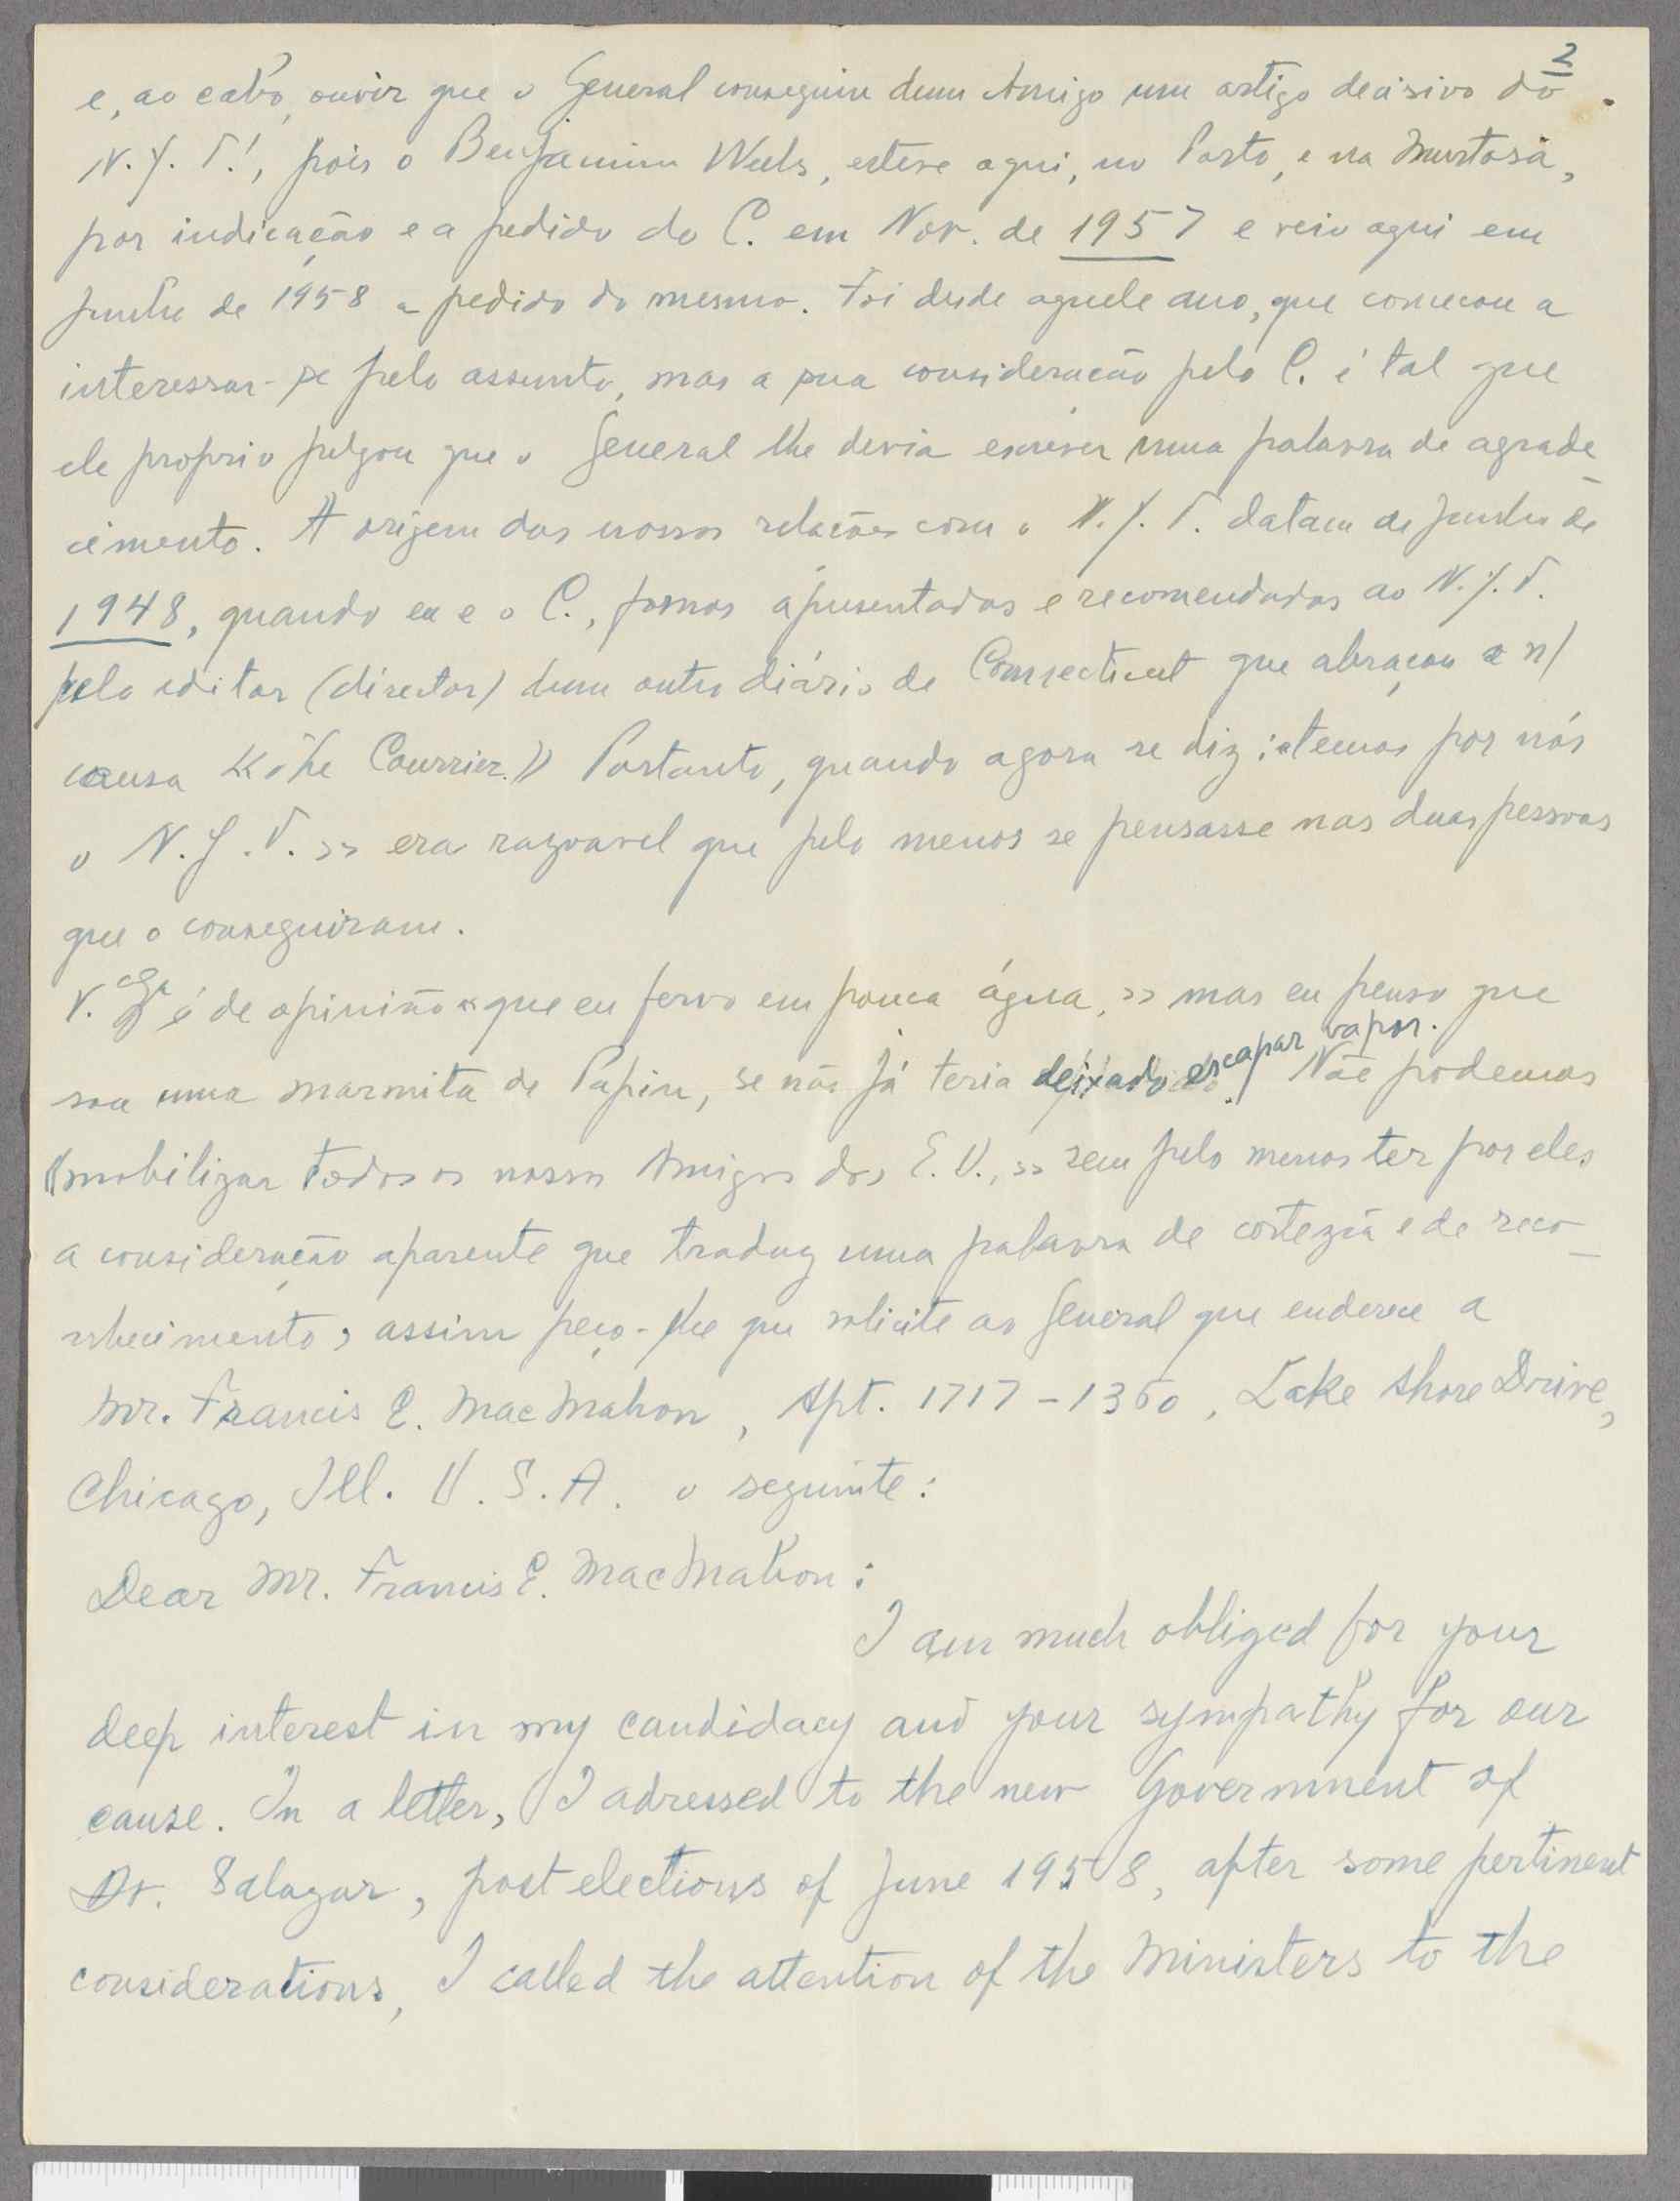 2
e, ao cabo, ouvir que o General conseguiu dum Amigo um artigo decisivo do
N. Y. T.!, pois o Benjamim Wells, esteve aqui, no Porto, e na Murtosa,
por indicação e a pedido do C. em Nov. de 1957 e veio aqui em
Junho de 1958 a pedido do mesmo. Foi desde aquele ano, que começou a
interessar-se pelo assunto, mas a sua consideração pelo C. é tal que
ele proprio julgou que o General lhe devia escrever uma palavra de agrade
cimento. A origem das nossas relações com o N. Y. T. datam de Junho de
1948, quando eu e o C., fomos apresentados e recomendados ao N. Y. T.
pelo editor (director) dum outro diário de Connecticut que abraçou a n/
causa «The Courrier.» Portanto, quando agora se diz: «temos por nós
o N. Y. T.» era razoavel que pelo menos se pensasse nas duas pessoas
que o conseguiram.
V. Exª é de opinião «que eu fervo em pouca água,» mas eu penso que
sou uma marmita de Papin, se não já teria deixado escapar vapor. Não podemos
«mobilizar todos os nossos Amigos dos E. U.,» sem pelo menos ter por eles
a consideração aparente que traduz uma palavra de cortezia e de reco-
nhecimento, assim peço-lhe que solicite ao General que enderece a
Mr. Francis E. MacMahon, Apt. 1717 - 1360, Lake Shore Drive,
Chicago, Ill. U. S. A. o seguinte:
Dear Mr. Francis E. MacMahon:
I am much obliged for your
deep interest in my candidacy and your sympathy for our
cause. In a letter, I adressed to the new Government of
Dr. Salazar, post elections of June 1958, after some pertinent
considerations, I called the attention of the Ministers to the